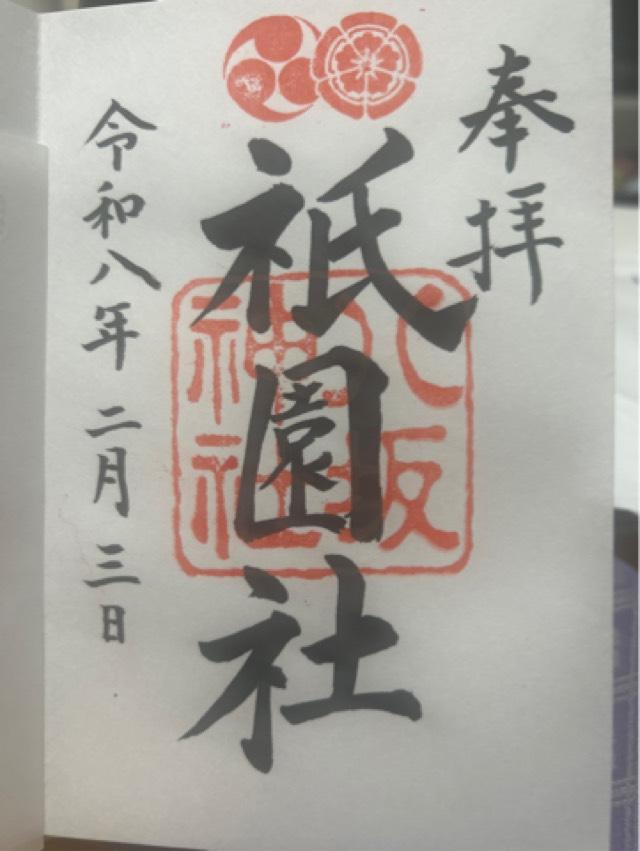 奉拝
八坂神社
祇園社
令和八年二月三日